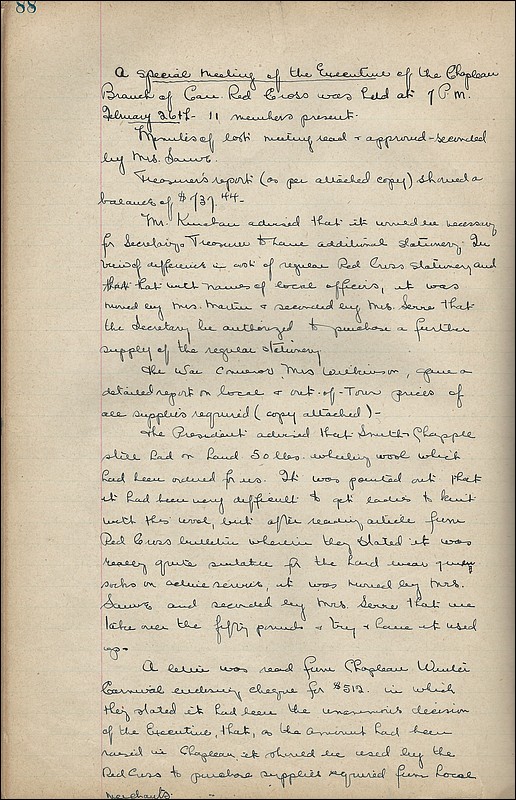 88
A special meeting of the Executive of the Chapleau
Branch of Can. Red Cross was held at 7 P.M.
February 26th - 11 members present.
Minutes of last meeting read & approved - seconded
by Mrs.
Treasurer's report (as per attached copy) showed a
balance of $737.44 -
Mr. Kinahan advised that it would be necessary
for Secretary & Treasurer to have additional stationery. In
view of difference in cost of regular Red Cross stationery and
that with names of local officers, it was
moved by Mrs. Martin & seconded by Mrs. Serre that
the Secretary be authorized to purchase a further
supply of the regular stationery
The War Convenor Mrs Wilkinson, gave a
detailed report on local & out-of-Town prices of
all supplies required (copy attached) -
The President advised that Smith & Chapple
still had on hand 50 lbs. wheeling wool which
had been ordered for us. It was pointed out that
it had been very difficult to get ladies to knit
with this wool, but after reading article from
Red Cross bulletin wherein they stated it was
really quite suitable for the hard wear given
socks on active service, it was moved by Mrs.
and seconded by Mrs. Serre that we
take over the fifty pounds & try & have it used
up -
A letter was read from Chapleau Winter
Carnival enclosing cheque for $512. in which
they stated it had been the unanimous decision
of the Executive, that, as the amount had been
raised in Chapleau it should be used by the
Red Cross to purchase supplies required from local
merchants.